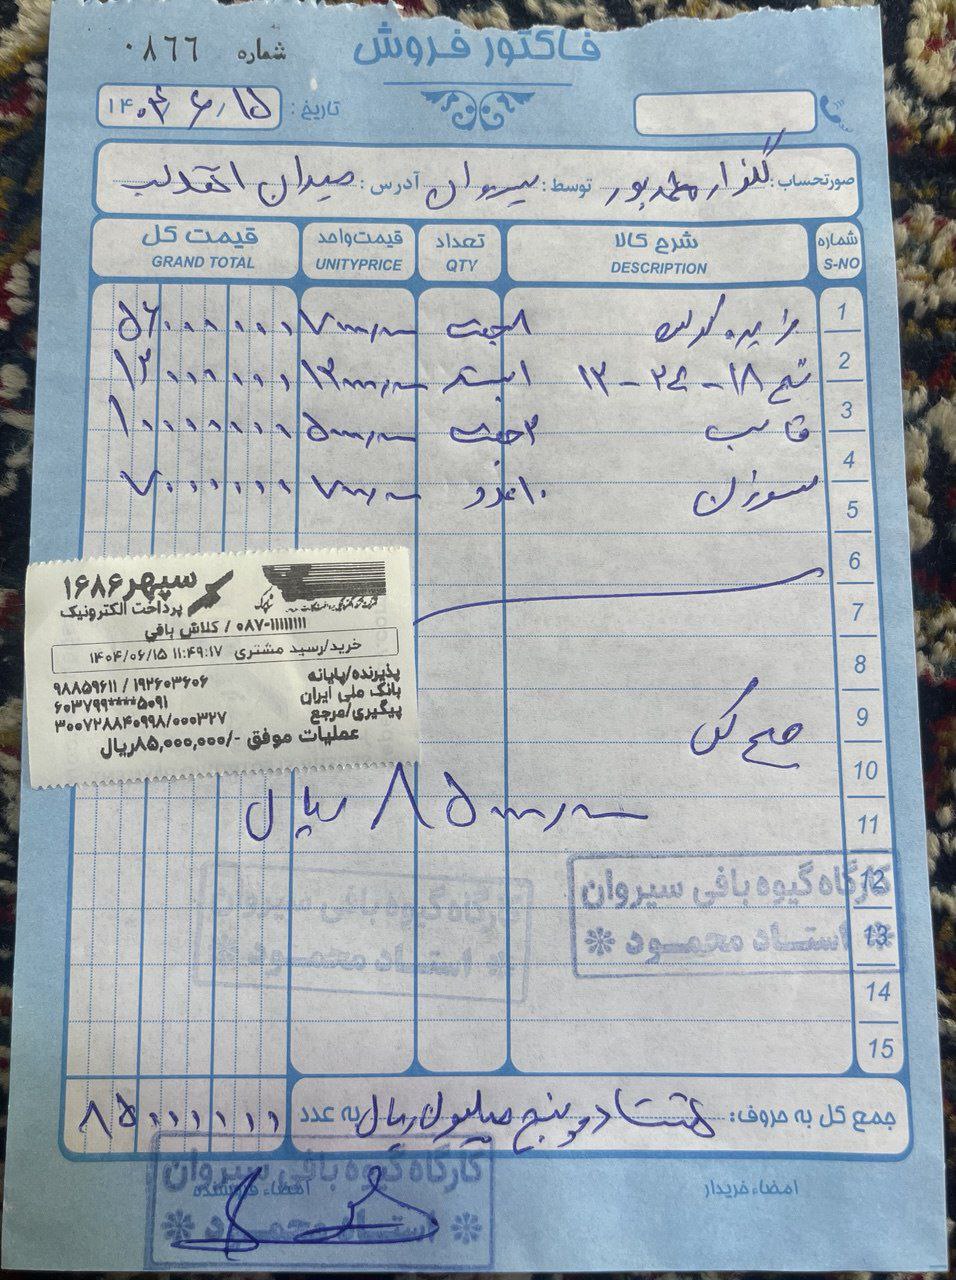 فاکتور فروش
شماره ۰۸۶۶
تاریخ: ۱۴۰۴/۶/۱۵
صورتحساب: گلزار محمدپور توسط: سیروان آدرس: میدان انقلاب
شماره S-NO شرح کالا DESCRIPTION تعداد QTY قیمت واحد UNITYPRICE قیمت کل GRAND TOTAL
1 ۸ جفت ۷۰۰۰۰۰۰ ۵۶۰۰۰۰۰۰
2 نخ ۱۸ - ۲۴ - ۱۲ ۱ بسته ۱۲۰۰۰۰۰۰ ۱۲۰۰۰۰۰۰
3 قالب ۲ جفت ۵۰۰۰۰۰۰ ۱۰۰۰۰۰۰۰
4 سوزن ۱۰ عدد ۷۰۰۰۰۰ ۷۰۰۰۰۰۰
5
6
7
8
9
10
11
12
13
14
15
سپهر ۱۶۸۶
پرداخت الکترونیک
۰۸۷-۱۱۱۱۱۱۱۱ / کلاش بافی
خرید/رسید مشتری ۱۴۰۴/۰۶/۱۵ ۱۱:۴۹:۱۷
پذیرنده/پایانه ۹۸۸۵۹۶۱۱ / ۱۹۲۶۰۳۶۰۶
بانک ملی ایران ۶۰۳۷۹۹****۵۰۹۱
پیگیری/مرجع ۳۰۰۷۲۸۸۴۰۹۹۸/۰۰۰۳۲۷
عملیات موفق -/۸۵,۰۰۰,۰۰۰ریال
جمع کل
۸۵۰۰۰۰۰۰ ریال
کارگاه گیوه بافی سیروان
استاد محمود
کارگاه گیوه بافی سیروان
استاد محمود
جمع کل به حروف: هشتاد و پنج میلیون ریال به عدد ۸۵۰۰۰۰۰۰
امضاء خریدار امضاء فروشنده
کارگاه گیوه بافی سیروان
استاد محمود